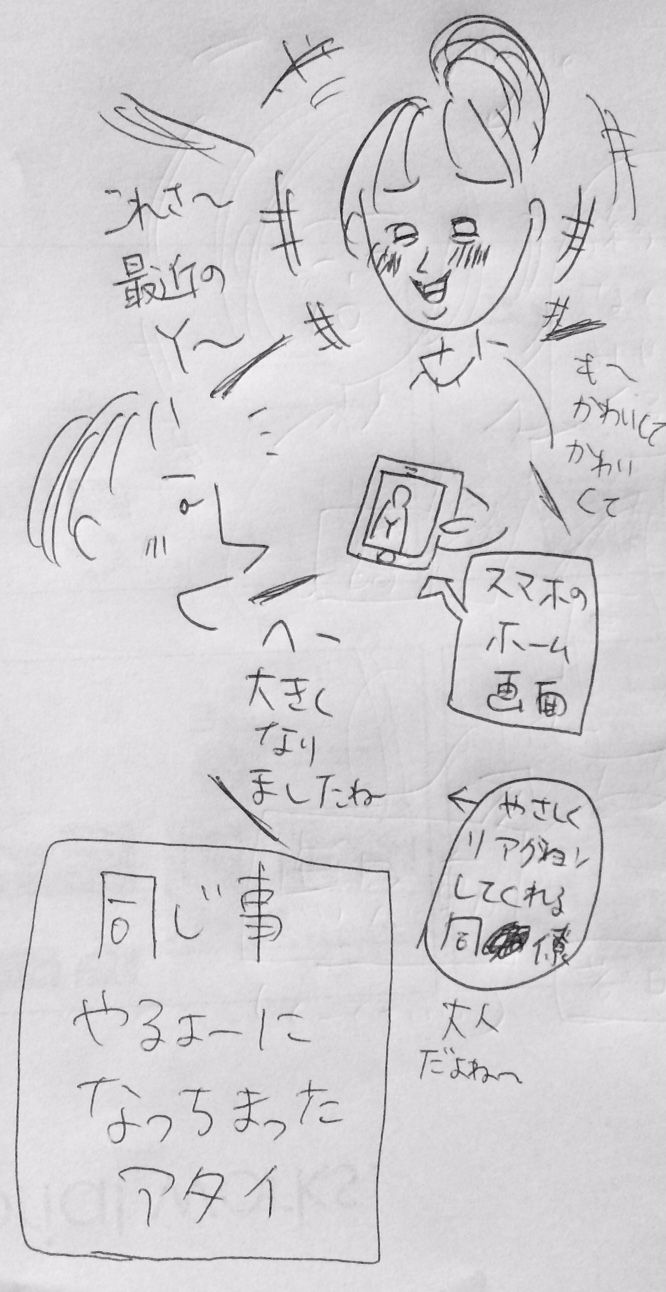 これさ〜
最近の
Y〜
も〜
かわいくて
かわい
くて
スマホの
ホーム
画面
へー
大きく
なり
ましたね
← やさしく
リアクション
してくれる
同僚
大人
だよね〜
同じ事
やるよーに
なっちまった
アタイ